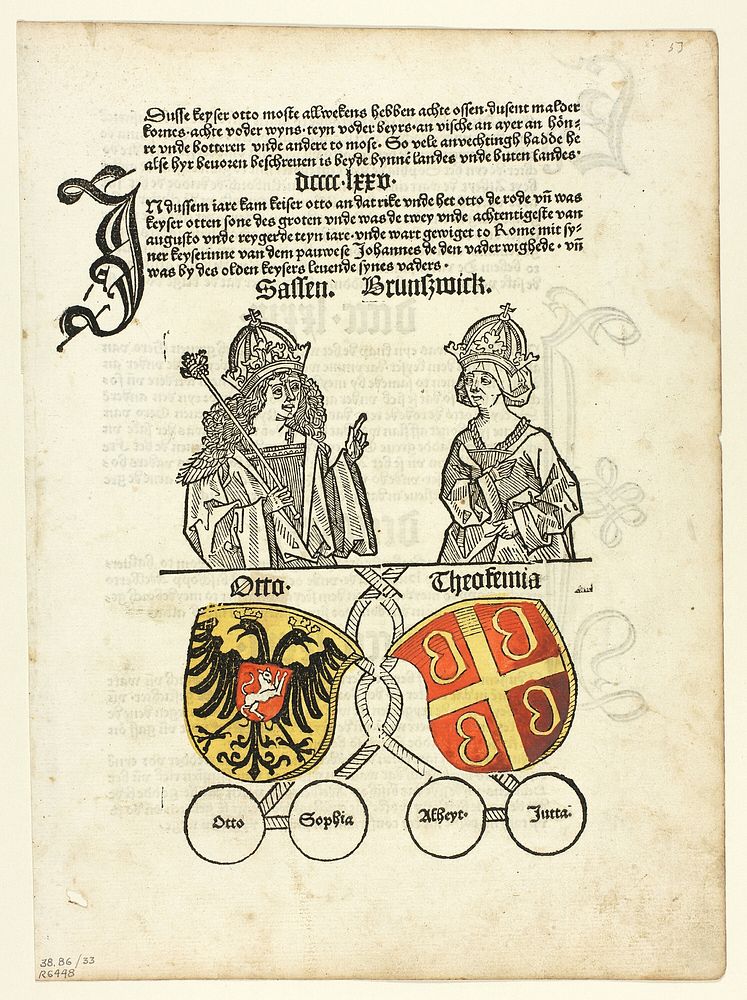 Dusse keyser otto moste allwekens hebben achte ossen·dusent malder
kornes·achte voder wyns·teyn voder beyrs·an vische an ayer an hön-
re vnde botteren vnde andere to mose· So vele anvechtingh hadde he
alse hyr beuoren beschreuen is beyde bynnē landes vnde buten landes·
dcccc·lxxv·
INdussem iare kam keiser otto an dat rike vnde het otto de rode vn̄ was
keyser otten sone des groten vnde was de twey vnde achtentigeste van
augusto vnde reygerde teyn iare·vnde wart gewiget to Rome mit sy-
ner keyserinne van dem pauwese Johannes de den vader wighede· vn̄
was by des olden keysers leuende synes vaders·
Sassen. Brunszwick.
Otto· Theofemia
Otto Sophia Alheyt· Jutta·
53
38.86/33
R6448